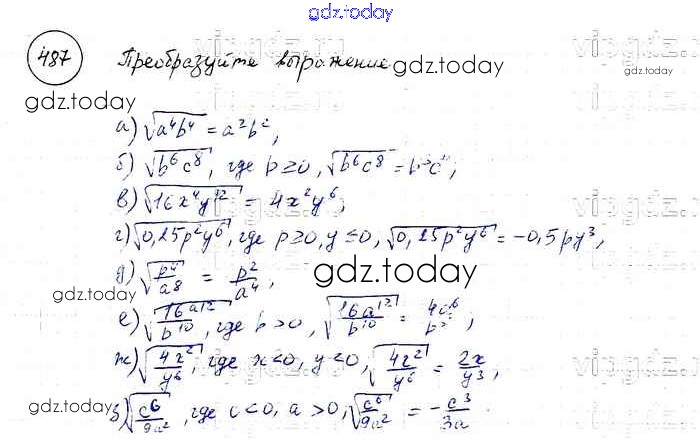 gdz.today
487 Преобразуйте выражение
gdz.today
gdz.today
gdz.today
а) √a⁴b⁴ = a²b²,
б) √b⁶c⁸, где b≥0, √b⁶c⁸ = b³c⁴;
gdz.today
в) √16x⁴y¹² = 4x²y⁶;
vipgdz.ru
г) √0,25p²y⁶, где p≥0, y≤0, √0,25p²y⁶ = -0,5py³,
д) √p⁴/a8 = p²/a⁴,
gdz.today
gdz.today
е) √16a¹²/b¹⁰, где b>0, √16a¹²/b¹⁰ =
ж) √4x²/y⁶, где x<0, y<0, √4x²/y⁶ = 2x/y³,
gdz.today
з) √c6/9a², где c<0, a>0, √c⁶/9a² = -c³/3a